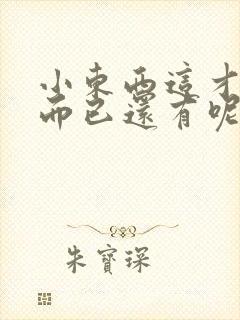 小東西這才
而已還有呢
朱寶琛